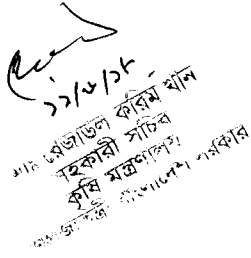 ১১/৬/১৮
রেজাউল করিম খান
সহকারী সচিব
কৃষি মন্ত্রণালয়
গণপ্রজাতন্ত্রী বাংলাদেশ সরকার